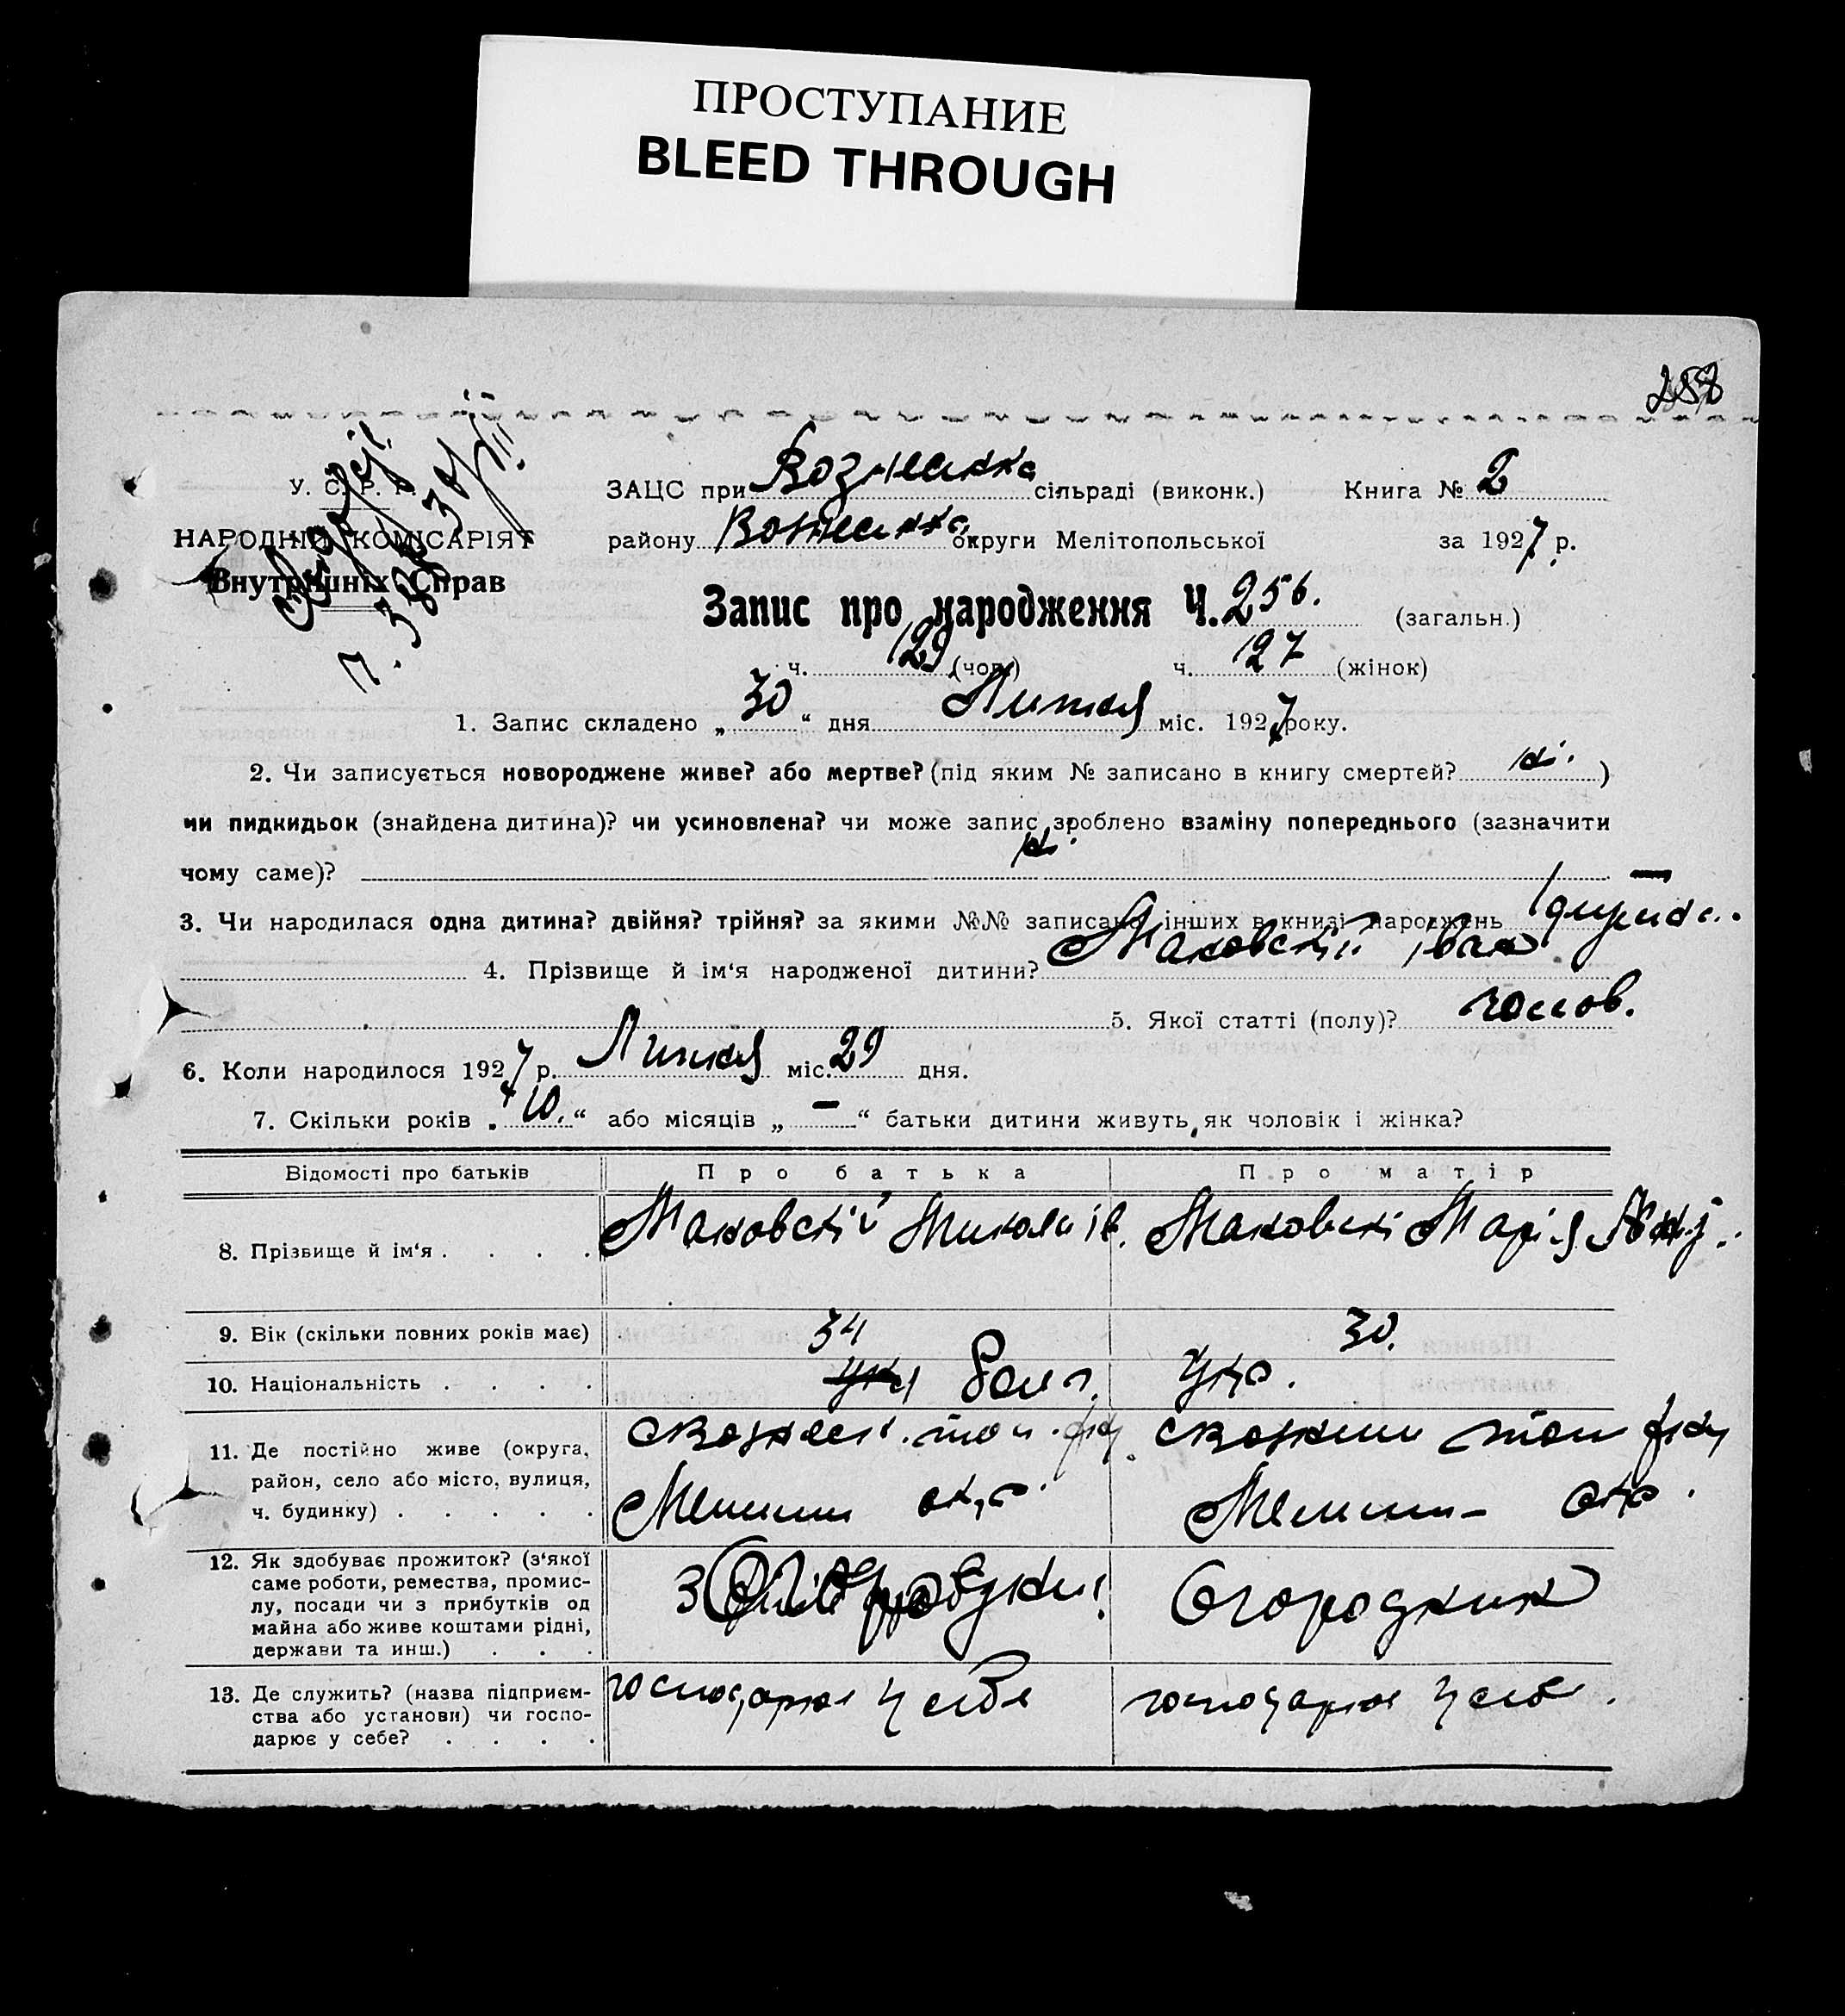 ПРОСТУПАНИЕ
BLEED THROUGH
258
У. С. Р. Р.
НАРОДНІЙ КОМІСАРІЯТ
Внутрішніх Справ
ЗАЦС при сільраді (виконк.) Книга № 2
району округи Мелітопольської за 1927 р.
Запис про народження Ч. 256. (загальн.)
ч. 129 (чол.) ч. 127 (жінок)
1. Запис складено „ 30 “ дня Липня міс. 1927 року.
2. Чи записується новороджене живе? або мертве? (під яким № записано в книгу смертей? ні. )
чи пидкидьок (знайдена дитина)? чи усиновлена? чи може запис зроблено взаміну попереднього (зазначити
чому саме)? ні.
3. Чи народилася одна дитина? двійня? трійня? за якими №№ записано інших в книзі народжень
4. Прізвище й ім‘я народженої дитини? Маковскій Іван
5. Якої статті (полу)? чолов.
6. Коли народилося 1927 р. Липня міс. 29 дня.
7. Скільки років „ 10. “ або місяців „ — “ батьки дитини живуть, як чоловік і жінка?
Відомості про батьків Про батька Про матір
8. Прізвище й ім‘я . . . . Маковскій Микола Ів. Маковскі Марія
9. Вік (скільки повних років має) 34 30.
10. Національність . . . . Укр.
11. Де постійно живе (округа,
район, село або місто, вулиця,
ч. будинку) . . . . .
12. Як здобуває прожиток? (з‘якої
саме роботи, ремества, промис-
лу, посади чи з прибутків од
майна або живе коштами рідні,
держави та инш.) . . . Огородник
13. Де служить? (назва підприєм-
ства або установи) чи госпо-
дарює у себе? . . . . господарює у себе господарює у себе.